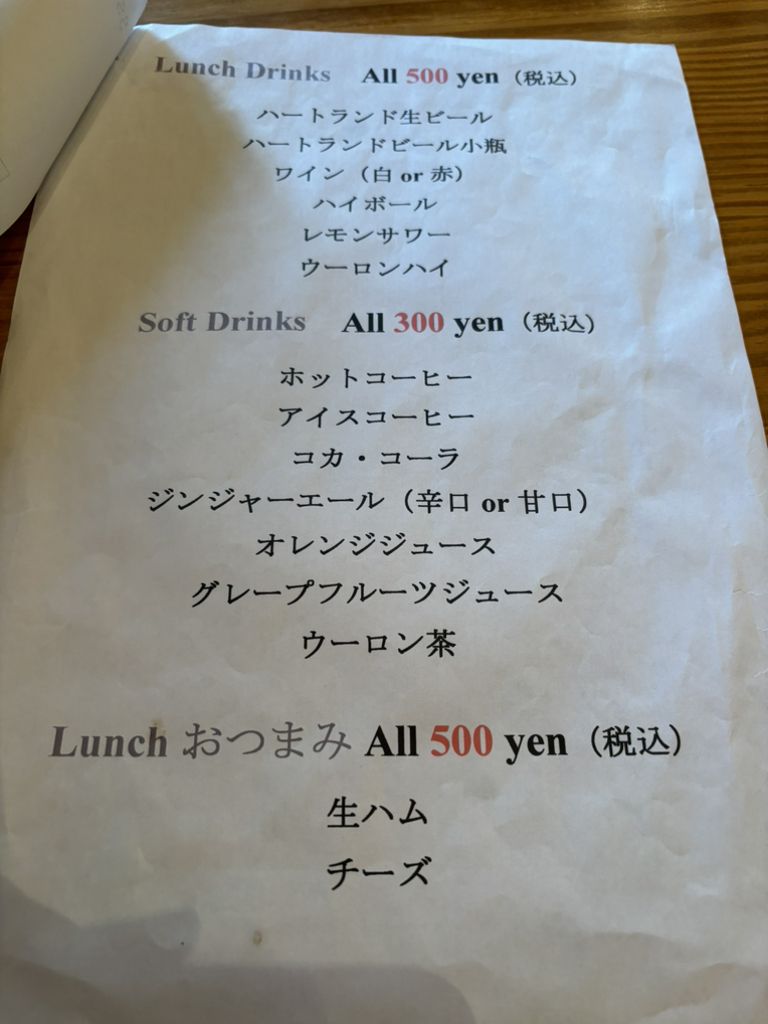 Lunch Drinks All 500 yen（税込）
ハートランド生ビール
ハートランドビール小瓶
ワイン（白 or 赤）
ハイボール
レモンサワー
ウーロンハイ
Soft Drinks All 300 yen（税込）
ホットコーヒー
アイスコーヒー
コカ・コーラ
ジンジャーエール（辛口 or 甘口）
オレンジジュース
グレープフルーツジュース
ウーロン茶
Lunch おつまみ All 500 yen（税込）
生ハム
チーズ